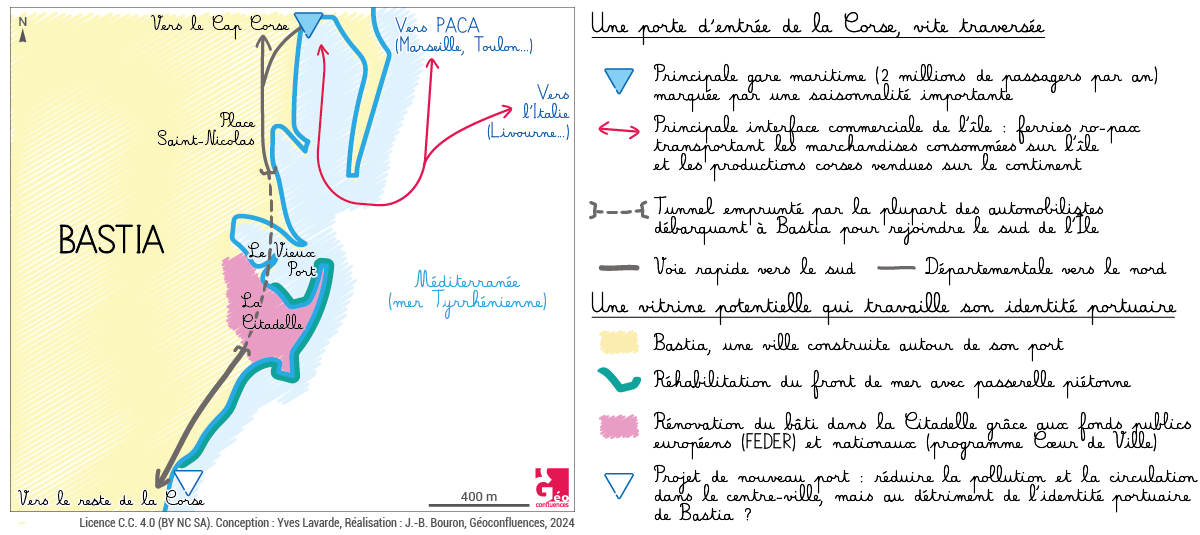 N
Vers le Cap Corse
Vers PACA
(Marseille, Toulon...)
Vers
l'Italie
(Livourne...)
Place
Saint-Nicolas
BASTIA
Le Vieux
Port
La
Citadelle
Méditerranée
(mer Tyrrhénienne)
Vers le reste de la Corse
400 m
Géo
confluences
Licence C.C. 4.0 (BY NC SA). Conception : Yves Lavarde, Réalisation : J.-B. Bouron, Géoconfluences, 2024
Une porte d'entrée de la Corse, vite traversée
Principale gare maritime (2 millions de passagers par an)
marquée par une saisonnalité importante
Principale interface commerciale de l'île : ferries ro-pax
transportant les marchandises consommées sur l'île
et les productions corses vendues sur le continent
Tunnel emprunté par la plupart des automobilistes
débarquant à Bastia pour rejoindre le sud de l'Île
Voie rapide vers le sud
Départementale vers le nord
Une vitrine potentielle qui travaille son identité portuaire
Bastia, une ville construite autour de son port
Réhabilitation du front de mer avec passerelle piétonne
Rénovation du bâti dans la Citadelle grâce aux fonds publics
européens (FEDER) et nationaux (programme Cœur de Ville)
Projet de nouveau port : réduire la pollution et la circulation
dans le centre-ville, mais au détriment de l'identité portuaire
de Bastia ?